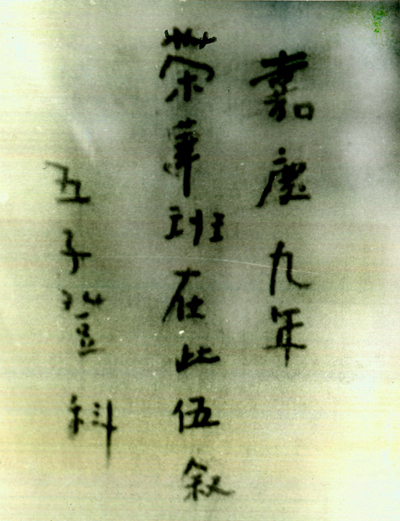 嘉慶九年
荣華班在此伍叙
五子登科